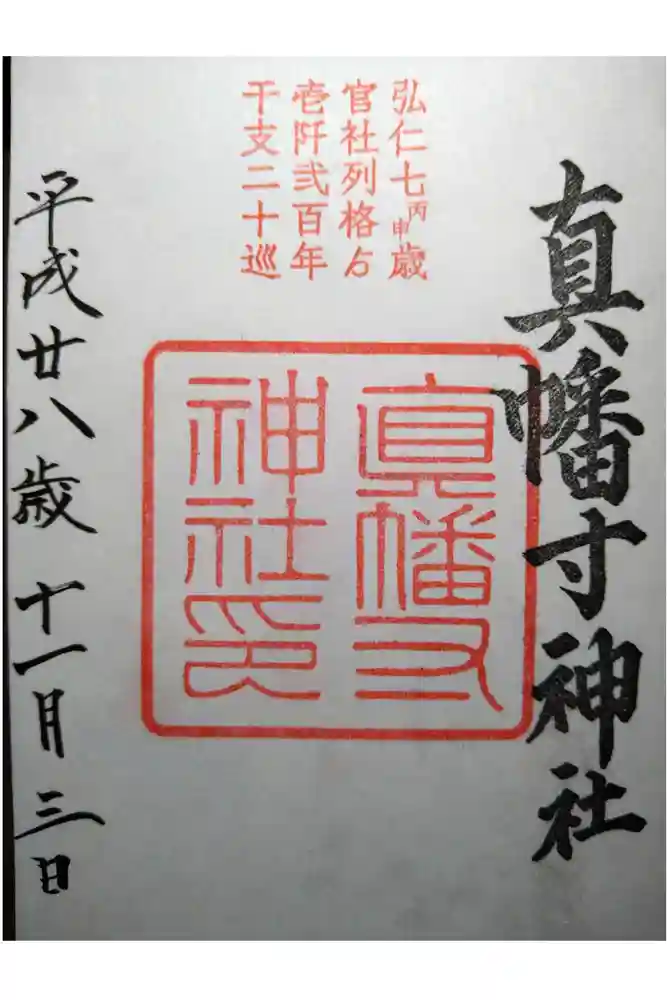 真幡寸神社
弘仁七丙申歳
官社列格占
壱阡弐百年
干支二十巡
真幡寸
神社印
平成廿八歳 十一月三日